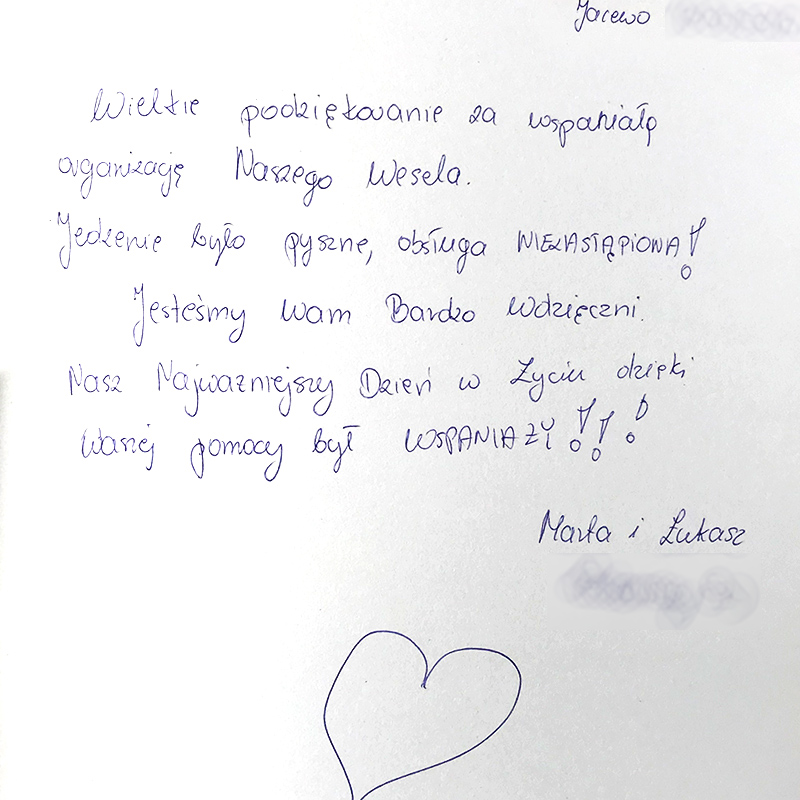 Jarewo
Wielkie podziękowanie za wspaniałą
organizację Naszego Wesela.
Jedzenie było pyszne, obsługa NIEZASTĄPIONA!
Jesteśmy Wam Bardzo Wdzięczni.
Nasz Najważniejszy Dzień w Życiu dzięki
Waszej pomocy był WSPANIAŁY!!!
Marta i Łukasz